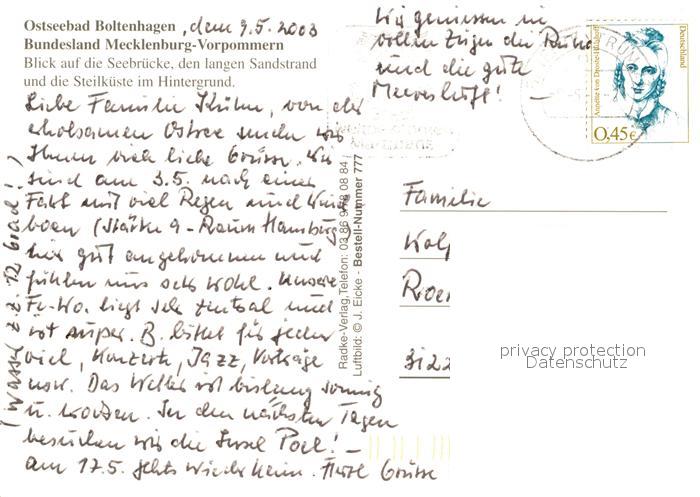 Ostseebad Boltenhagen, dem 9.5.2003
Bundesland Mecklenburg-Vorpommern
Blick auf die Seebrücke, den langen Sandstrand
und die Steilküste im Hintergrund.
Liebe Familie Kühn, von der
erholsamen Ostsee senden wir
Ihnen viele liebe Grüsse. Wir
sind am 3.5. nach einer
Fahrt mit viel Regen und Wind
boen (Stärke 9 - Raum Hamburg
hier gut angekommen und
fühlen uns sehr wohl. Unsere
Fe-Wo. liegt sehr zentral und
ist super. B. bietet für jeden
viel, Konzerte, Jazz, Vorträge
usw. Das Wetter ist bislang sonnig
u. trocken. In den nächsten Tagen
besuchen wir die Insel Poel! –
am 17.5. gehts wieder heim. Herzl. Grüsse
(Wasser z.Z. 12 Grad!)
Wir geniessen in
vollen Zügen die Ruhe
und die gute
Meeresluft! –
Radke-Verlag, Telefon: 03 86 08 84
Luftbild: © J. Eicke - Bestell-Nummer 777
Annette von Droste-Hülshoff
Deutschland
0,45€
Familie
privacy protection
Datenschutz